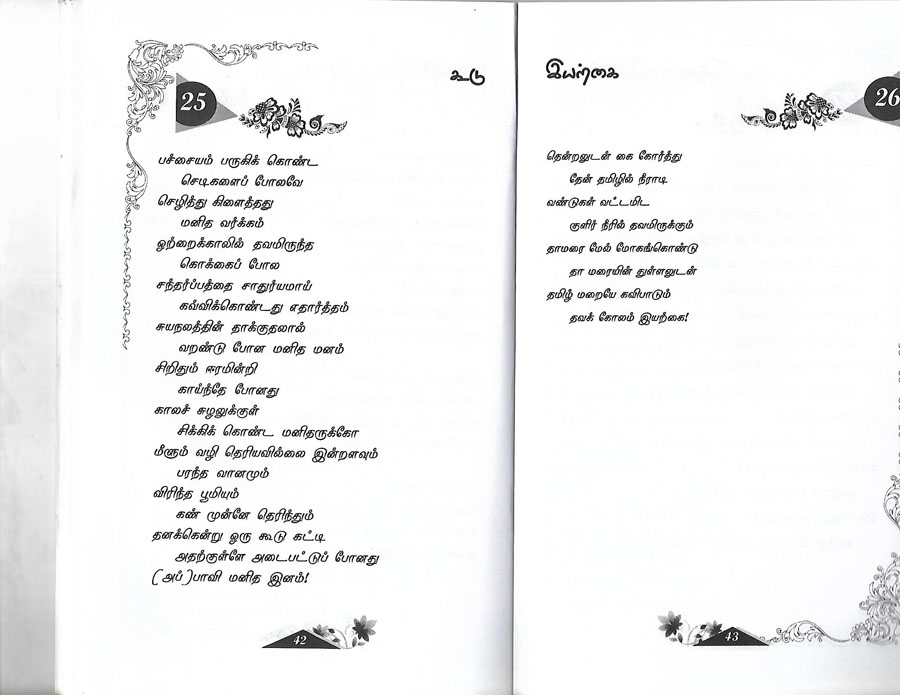 கூடு
25
பச்சையம் பருகிக் கொண்ட
செடிகளைப் போலவே
செழித்து கிளைத்தது
மனித வர்க்கம்
ஒற்றைக்காலில் தவமிருந்த
கொக்கைப் போல
சந்தர்ப்பத்தை சாதுர்யமாய்
கவ்விக்கொண்டது எதார்த்தம்
சுயநலத்தின் தாக்குதலால்
வறண்டு போன மனித மனம்
சிறிதும் ஈரமின்றி
காய்ந்தே போனது
காலச் சுழலுக்குள்
சிக்கிக் கொண்ட மனிதருக்கோ
மீளும் வழி தெரியவில்லை இன்றளவும்
பரந்த வானமும்
விரிந்த பூமியும்
கண் முன்னே தெரிந்தும்
தனக்கென்று ஒரு கூடு கட்டி
அதற்குள்ளே அடைபட்டுப் போனது
(அப்)பாவி மனித இனம்!
42
இயற்கை
26
தென்றலுடன் கை கோர்த்து
தேன் தமிழில் நீராடி
வண்டுகள் வட்டமிட
குளிர் நீரில் தவமிருக்கும்
தாமரை மேல் மோகங்கொண்டு
தா மரையின் துள்ளலுடன்
தமிழ் மறையே கவிபாடும்
தவக் கோலம் இயற்கை!
43